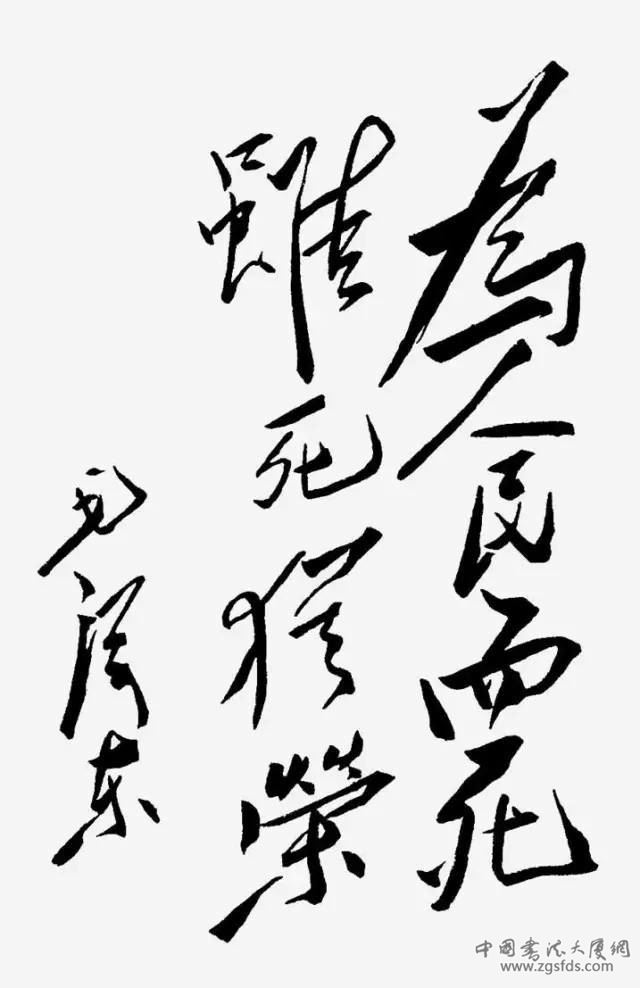 為人民而死
雖死猶榮
毛澤東
中国书法大厦網
www.zgsfds.com